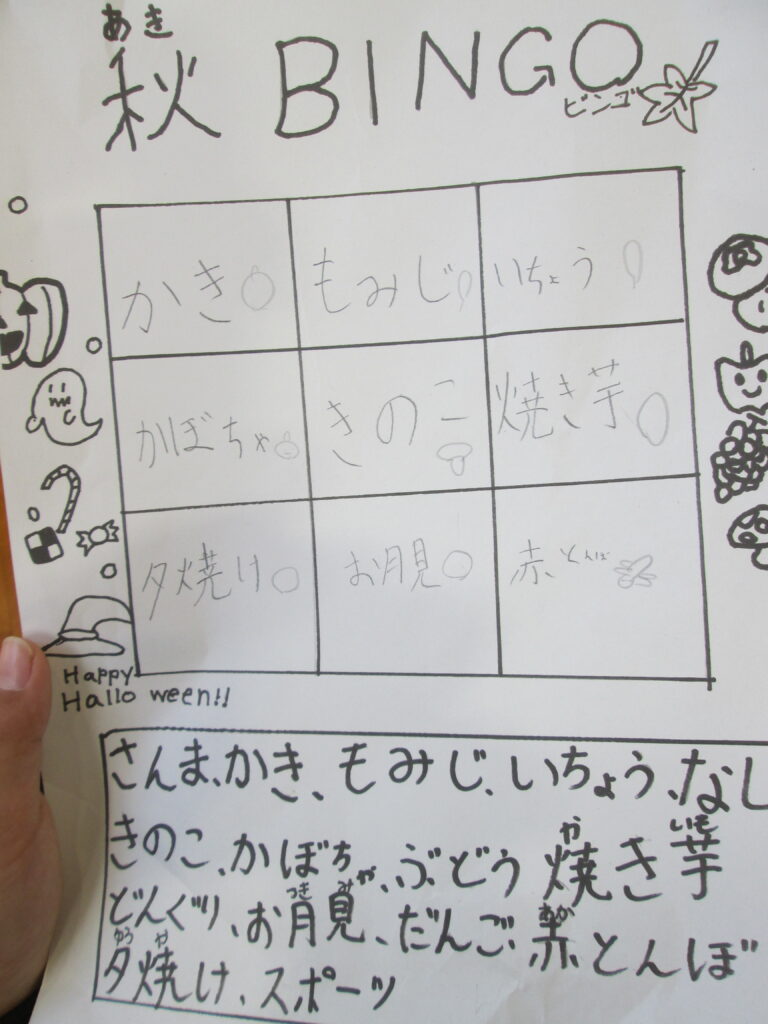 あき
秋 BINGO
ビンゴ
かき もみじ いちょう
かぼちゃ きのこ 焼き芋
夕焼け お月見 赤とんぼ
Happy
Halloween!!
さんま、かき、もみじ、いちょう、なし
や いも
きのこ、かぼちゃ、ぶどう 焼き芋
つき み あか
どんぐり、お月見、だんご、赤とんぼ
ゆう や
夕焼け、スポーツ